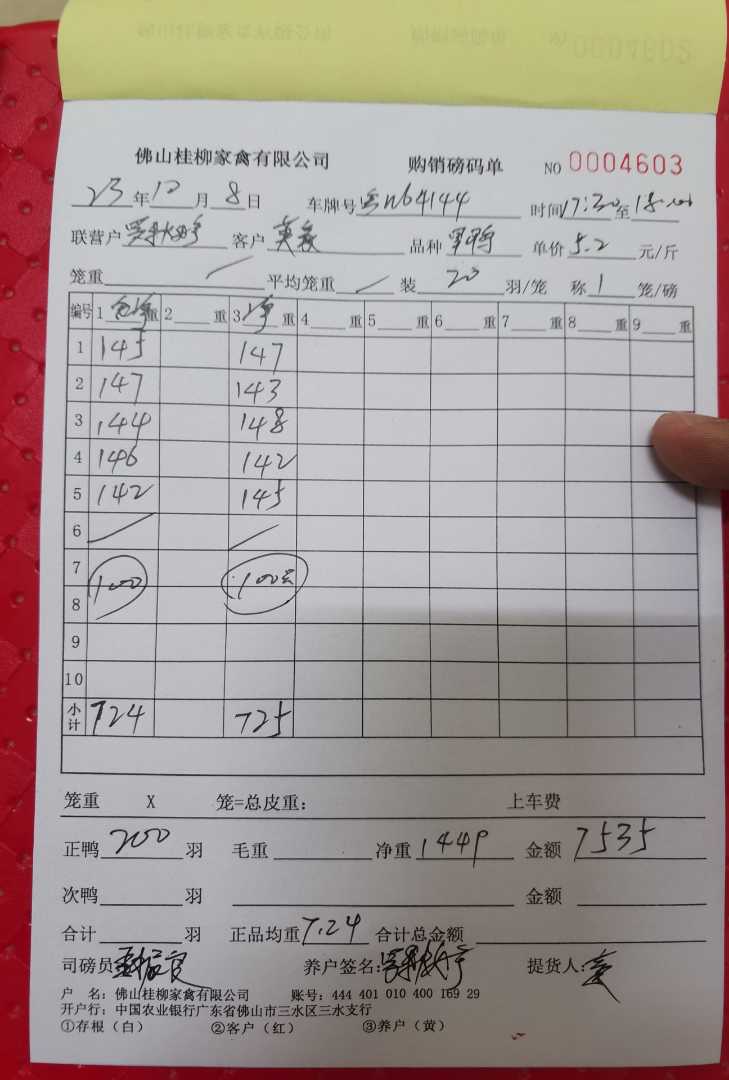 佛山桂柳家禽有限公司 购销磅码单 NO 0004603
23年12月8日 车牌号 N64144 时间17:30至18:00
联营户 客户 品种 单价5.2元/斤
笼重 平均笼重 装20羽/笼 称1笼/磅
编号 1 重 2 重 3 净重 4 重 5 重 6 重 7 重 8 重 9 重
1 145 147
2 147 143
3 144 148
4 146 142
5 142 145
6
7
100 100
8
9
10
小计 724 725
笼重 X 笼=总皮重: 上车费
正鸭200羽 毛重 净重1449 金额7535
次鸭 羽 金额
合计 羽 正品均重7.24 合计总金额
司磅员 养户签名: 提货人:
户 名:佛山桂柳家禽有限公司 账号:444 401 010 400 169 29
开户行:中国农业银行广东省佛山市三水区三水支行
①存根(白) ②客户(红) ③养户(黄)